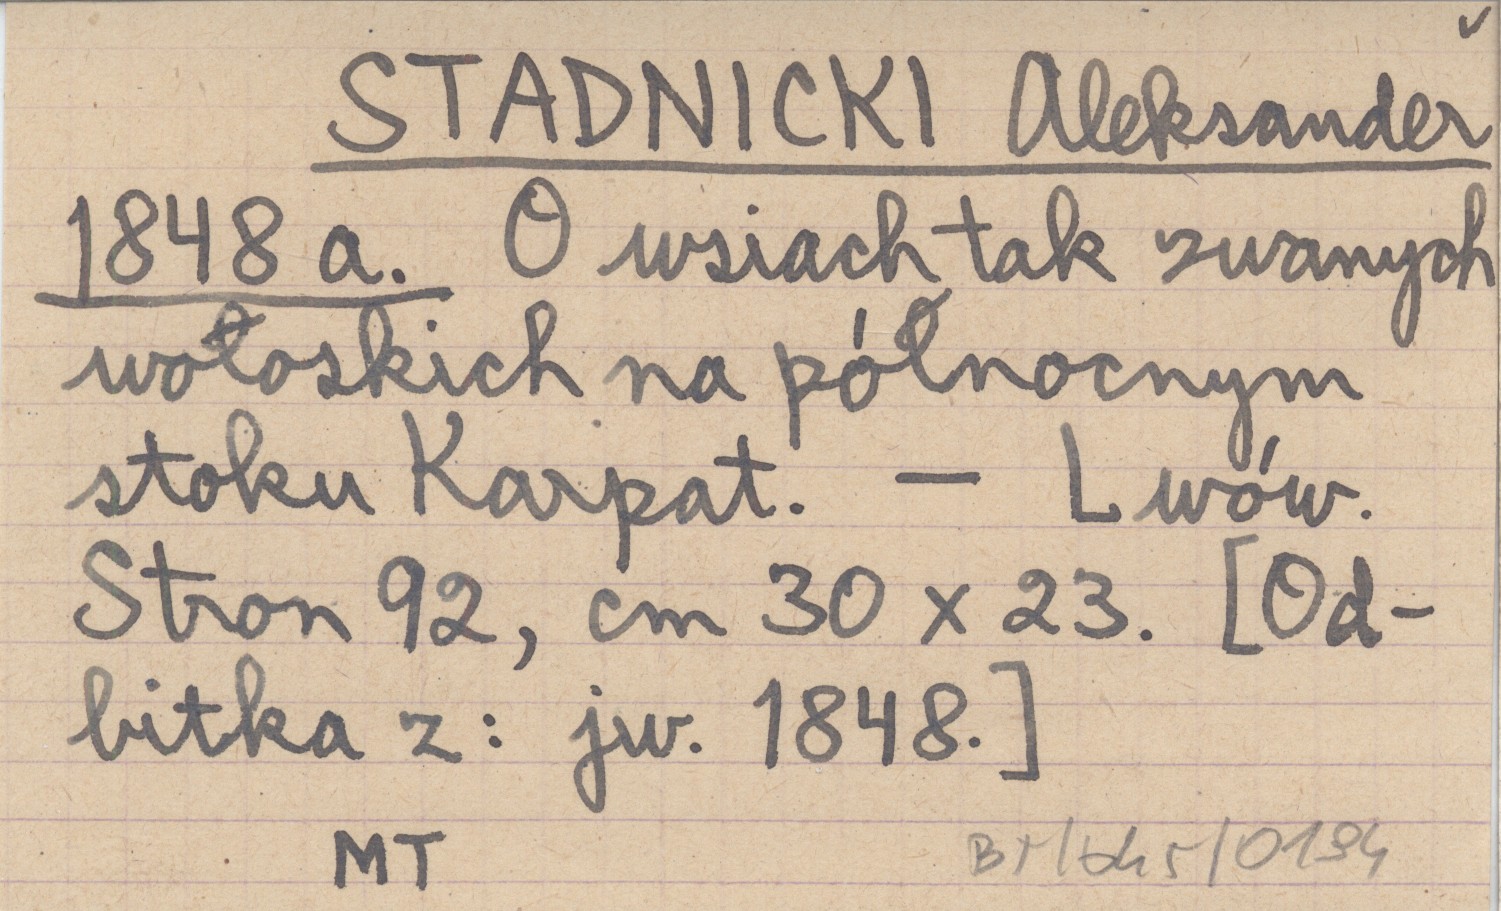 STADNICKI Aleksander
1848 a. O wsiach tak zwanych
wołoskich na północnym
stoku Karpat. — Lwów.
Stron 92, cm 30 x 23. [Od-
bitka z: jw. 1848.]
MT